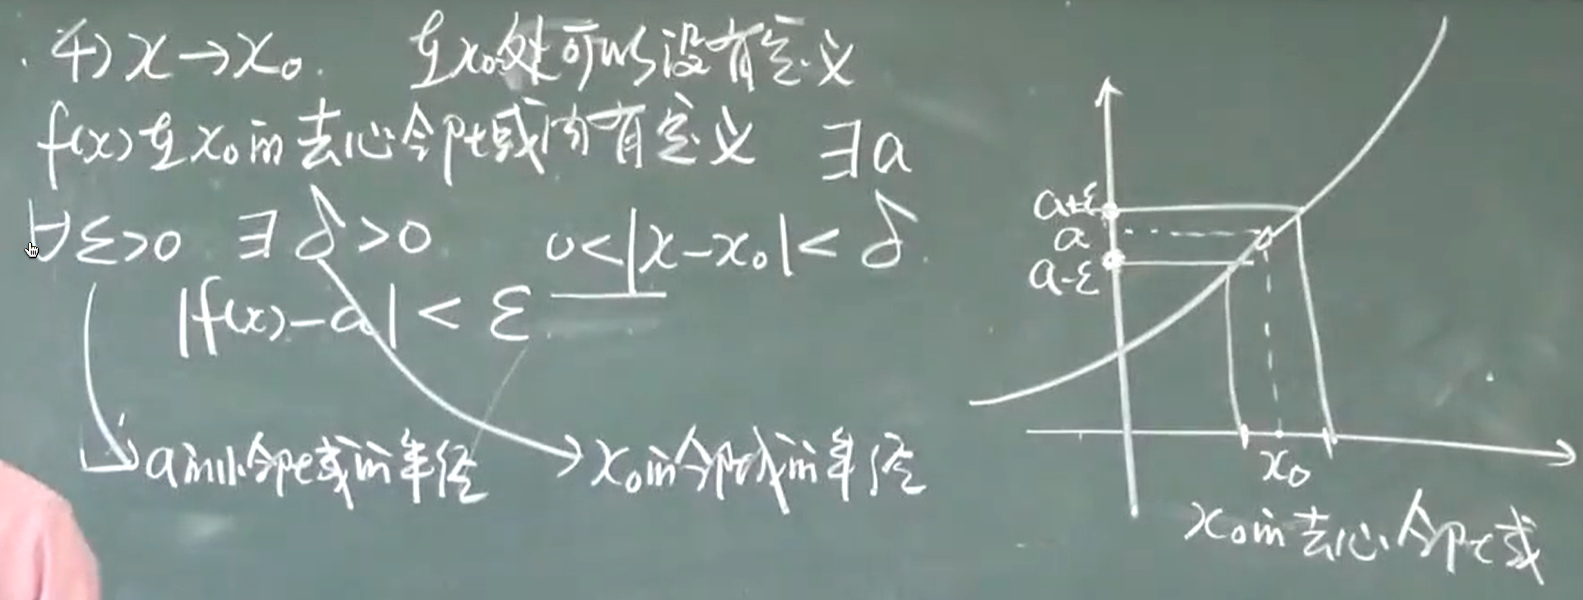 4) x→x₀. 在x₀处可以没有定义
f(x)在x₀的去心邻域内有定义 ∃a
∀ε>0 ∃δ>0 0<|x-x₀|<δ.
|f(x)-a|<ε
a的小邻域的半径 x₀的邻域的半径
a+ε
a
a-ε
x₀
x₀的去心邻域